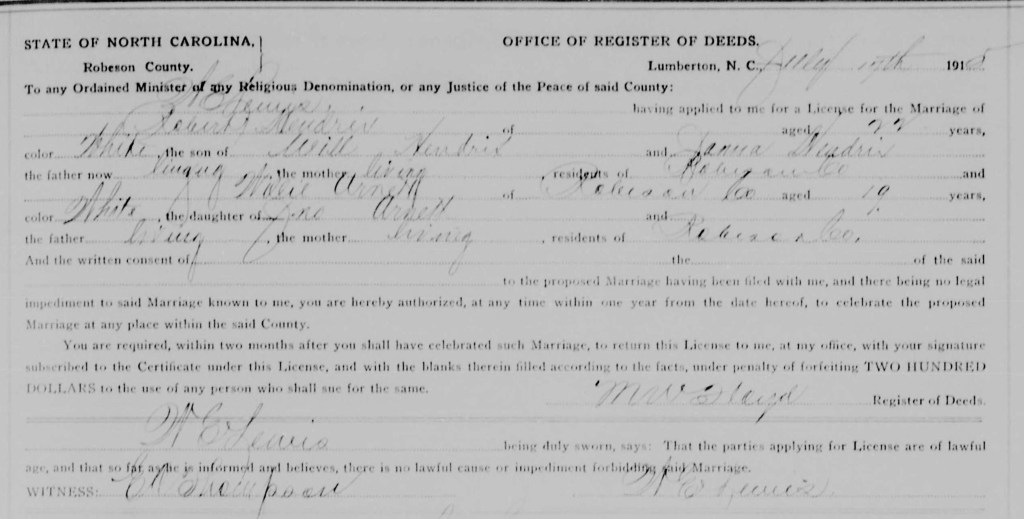 STATE OF NORTH CAROLINA, OFFICE OF REGISTER OF DEEDS,
Robeson County. Lumberton, N. C., July 17th 1915
To any Ordained Minister of any Religious Denomination, or any Justice of the Peace of said County:
W E Lewis having applied to me for a License for the Marriage of
Robert Hendrix of aged 22 years,
color White, the son of Will Hendrix and Hendrix
the father now living, the mother living, residents of Robeson Co and
Arnett of Robeson Co aged 19 years,
color White, the daughter of Jno Arnett and
the father living, the mother living, residents of Robeson Co.
And the written consent of the of the said
to the proposed Marriage having been filed with me, and there being no legal
impediment to said Marriage known to me, you are hereby authorized, at any time within one year from the date hereof, to celebrate the proposed
Marriage at any place within the said County.
You are required, within two months after you shall have celebrated such Marriage, to return this License to me, at my office, with your signature
subscribed to the Certificate under this License, and with the blanks therein filled according to the facts, under penalty of forfeiting TWO HUNDRED
DOLLARS to the use of any person who shall sue for the same.
M W Floyd Register of Deeds.
W E Lewis being duly sworn, says: That the parties applying for License are of lawful
age, and that so far as he is informed and believes, there is no lawful cause or impediment forbidding said Marriage.
WITNESS: Thompson W E Lewis